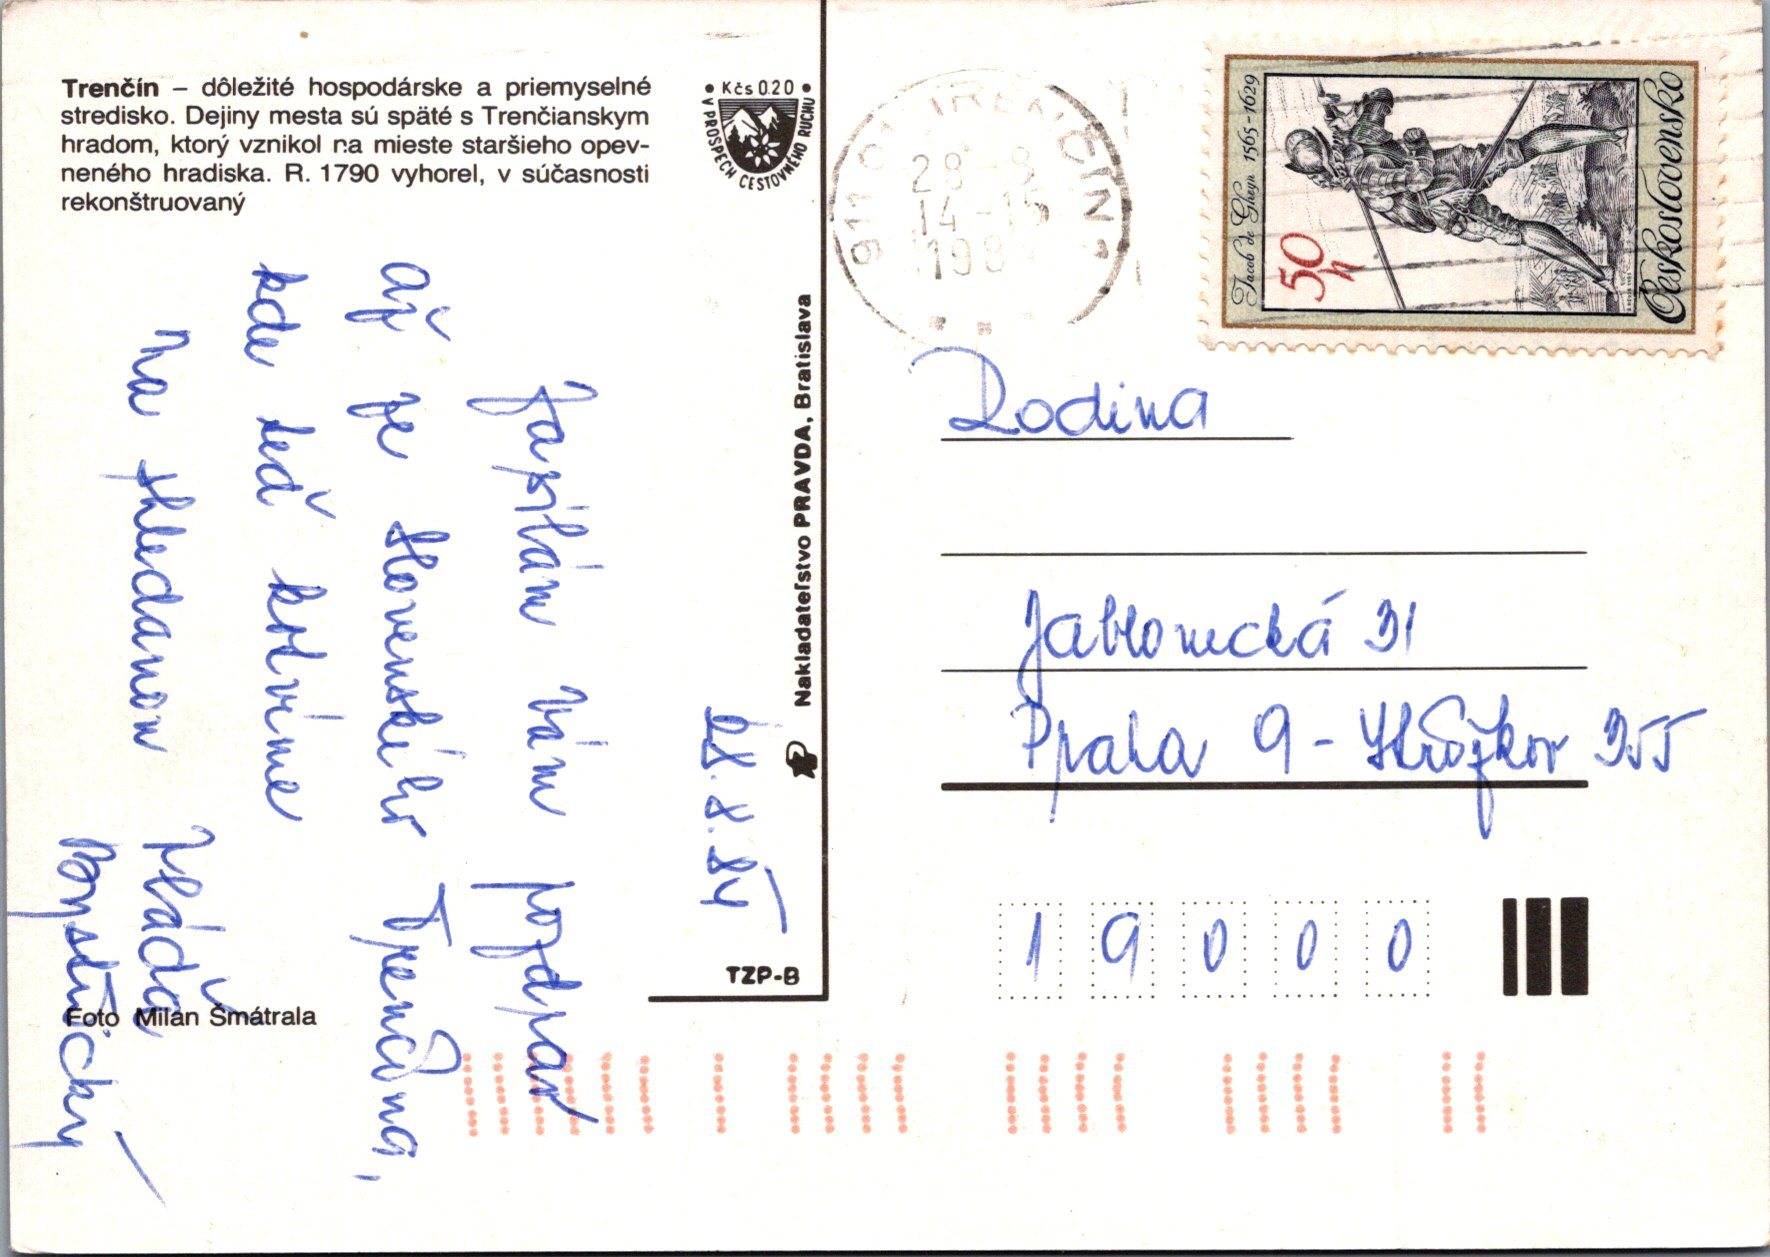 Trenčín – dôležité hospodárske a priemyselné
stredisko. Dejiny mesta sú späté s Trenčianskym
hradom, ktorý vznikol na mieste staršieho opev-
neného hradiska. R. 1790 vyhorel, v súčasnosti
rekonštruovaný
• Kčs 0.20 •
V PROSPECH CESTOVNÉHO RUCHU
28.8.84
Vám pozdrav
aj ze slovenskýho Trenčína,
kde teď kotvíme
Na shledanou
Vláďa
Bystřický
Nakladateľstvo PRAVDA, Bratislava
TZP-B
Foto Milan Šmátrala
911 01 TRENČÍN 1
28.-8.
14-15
198
Jacob de Gheyn 1565-1629
50 h
Československo
Rodina
Jablonecká 31
Praha 9 - 355
19000